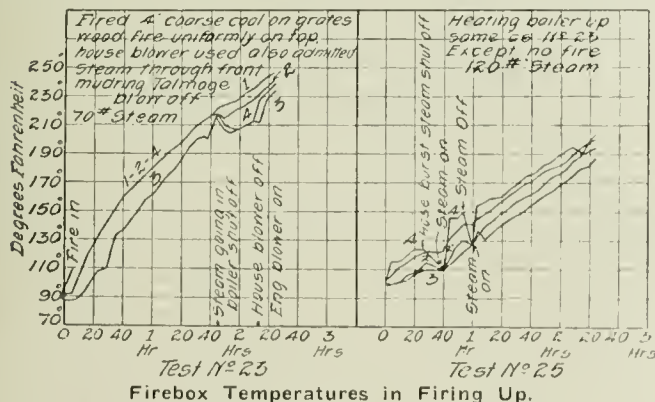 Fired 4" coarse coal on grates
wood fire uniformly on top,
house blower used also admitted
steam through front
mudring Talmage
blow off
70# Steam
Heating boiler up
same as No 23
Except no fire
120# Steam
Degrees Fahrenheit
250°
230°
210°
190°
170°
150°
130°
110°
90°
70°
Fire in
1-2-4
3
1
2
4
3
Steam going in
boiler shut off
House blower off
Eng blower on
Hose burst steam shut off
Steam on
Steam Off
Steam on
4
4
3
0 20 40 1 20 40 2 20 40 3
Hr Hrs Hrs
0 20 40 1 20 40 2 20 40 3
Hr Hrs Hrs
Test No 23
Test No 25
Firebox Temperatures in Firing Up.